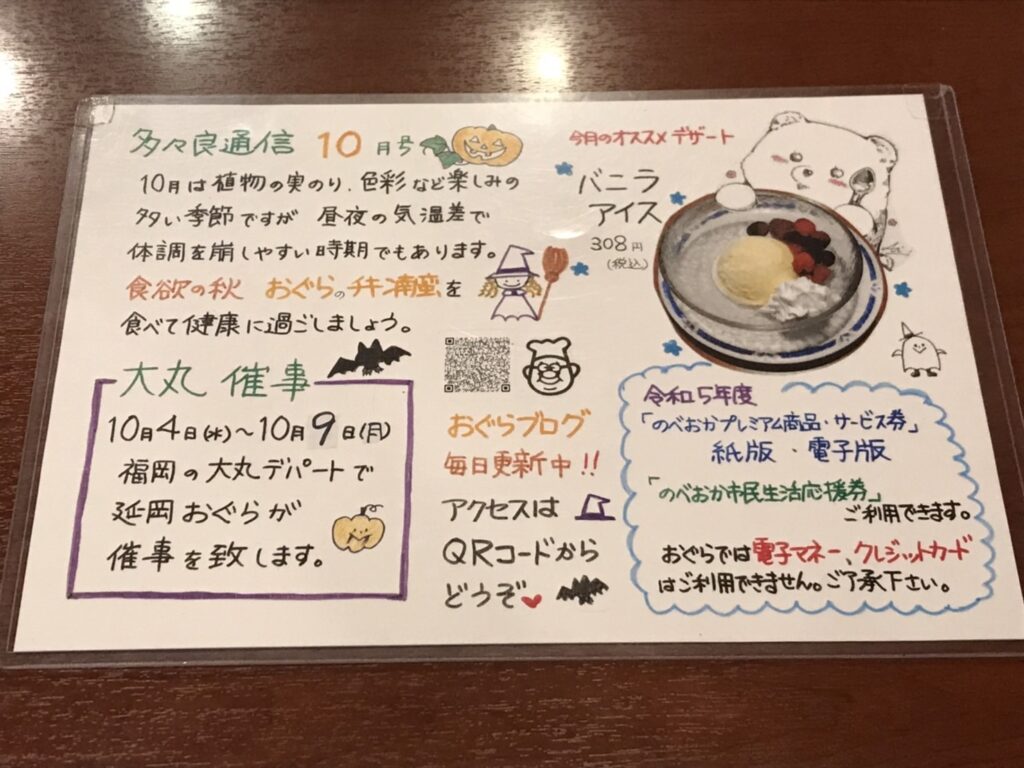 多々良通信 10月号
10月は植物の実のり、色彩など楽しみの
多い季節ですが 昼夜の気温差で
体調を崩しやすい時期でもあります。
食欲の秋 おぐらのチキン南蛮を
食べて健康に過ごしましょう。
今月のオススメデザート
バニラ
アイス
308円
(税込)
大丸 催事
10月4日(水)〜10月9日(月)
福岡の大丸デパートで
延岡おぐらが
催事を致します。
おぐらブログ
毎日更新中!!
アクセスは
QRコードから
どうぞ
令和5年度
「のべおかプレミアム商品・サービス券」
紙版・電子版
「のべおか市民生活応援券」
ご利用できます。
おぐらでは電子マネー、クレジットカード
はご利用できません。ご了承下さい。